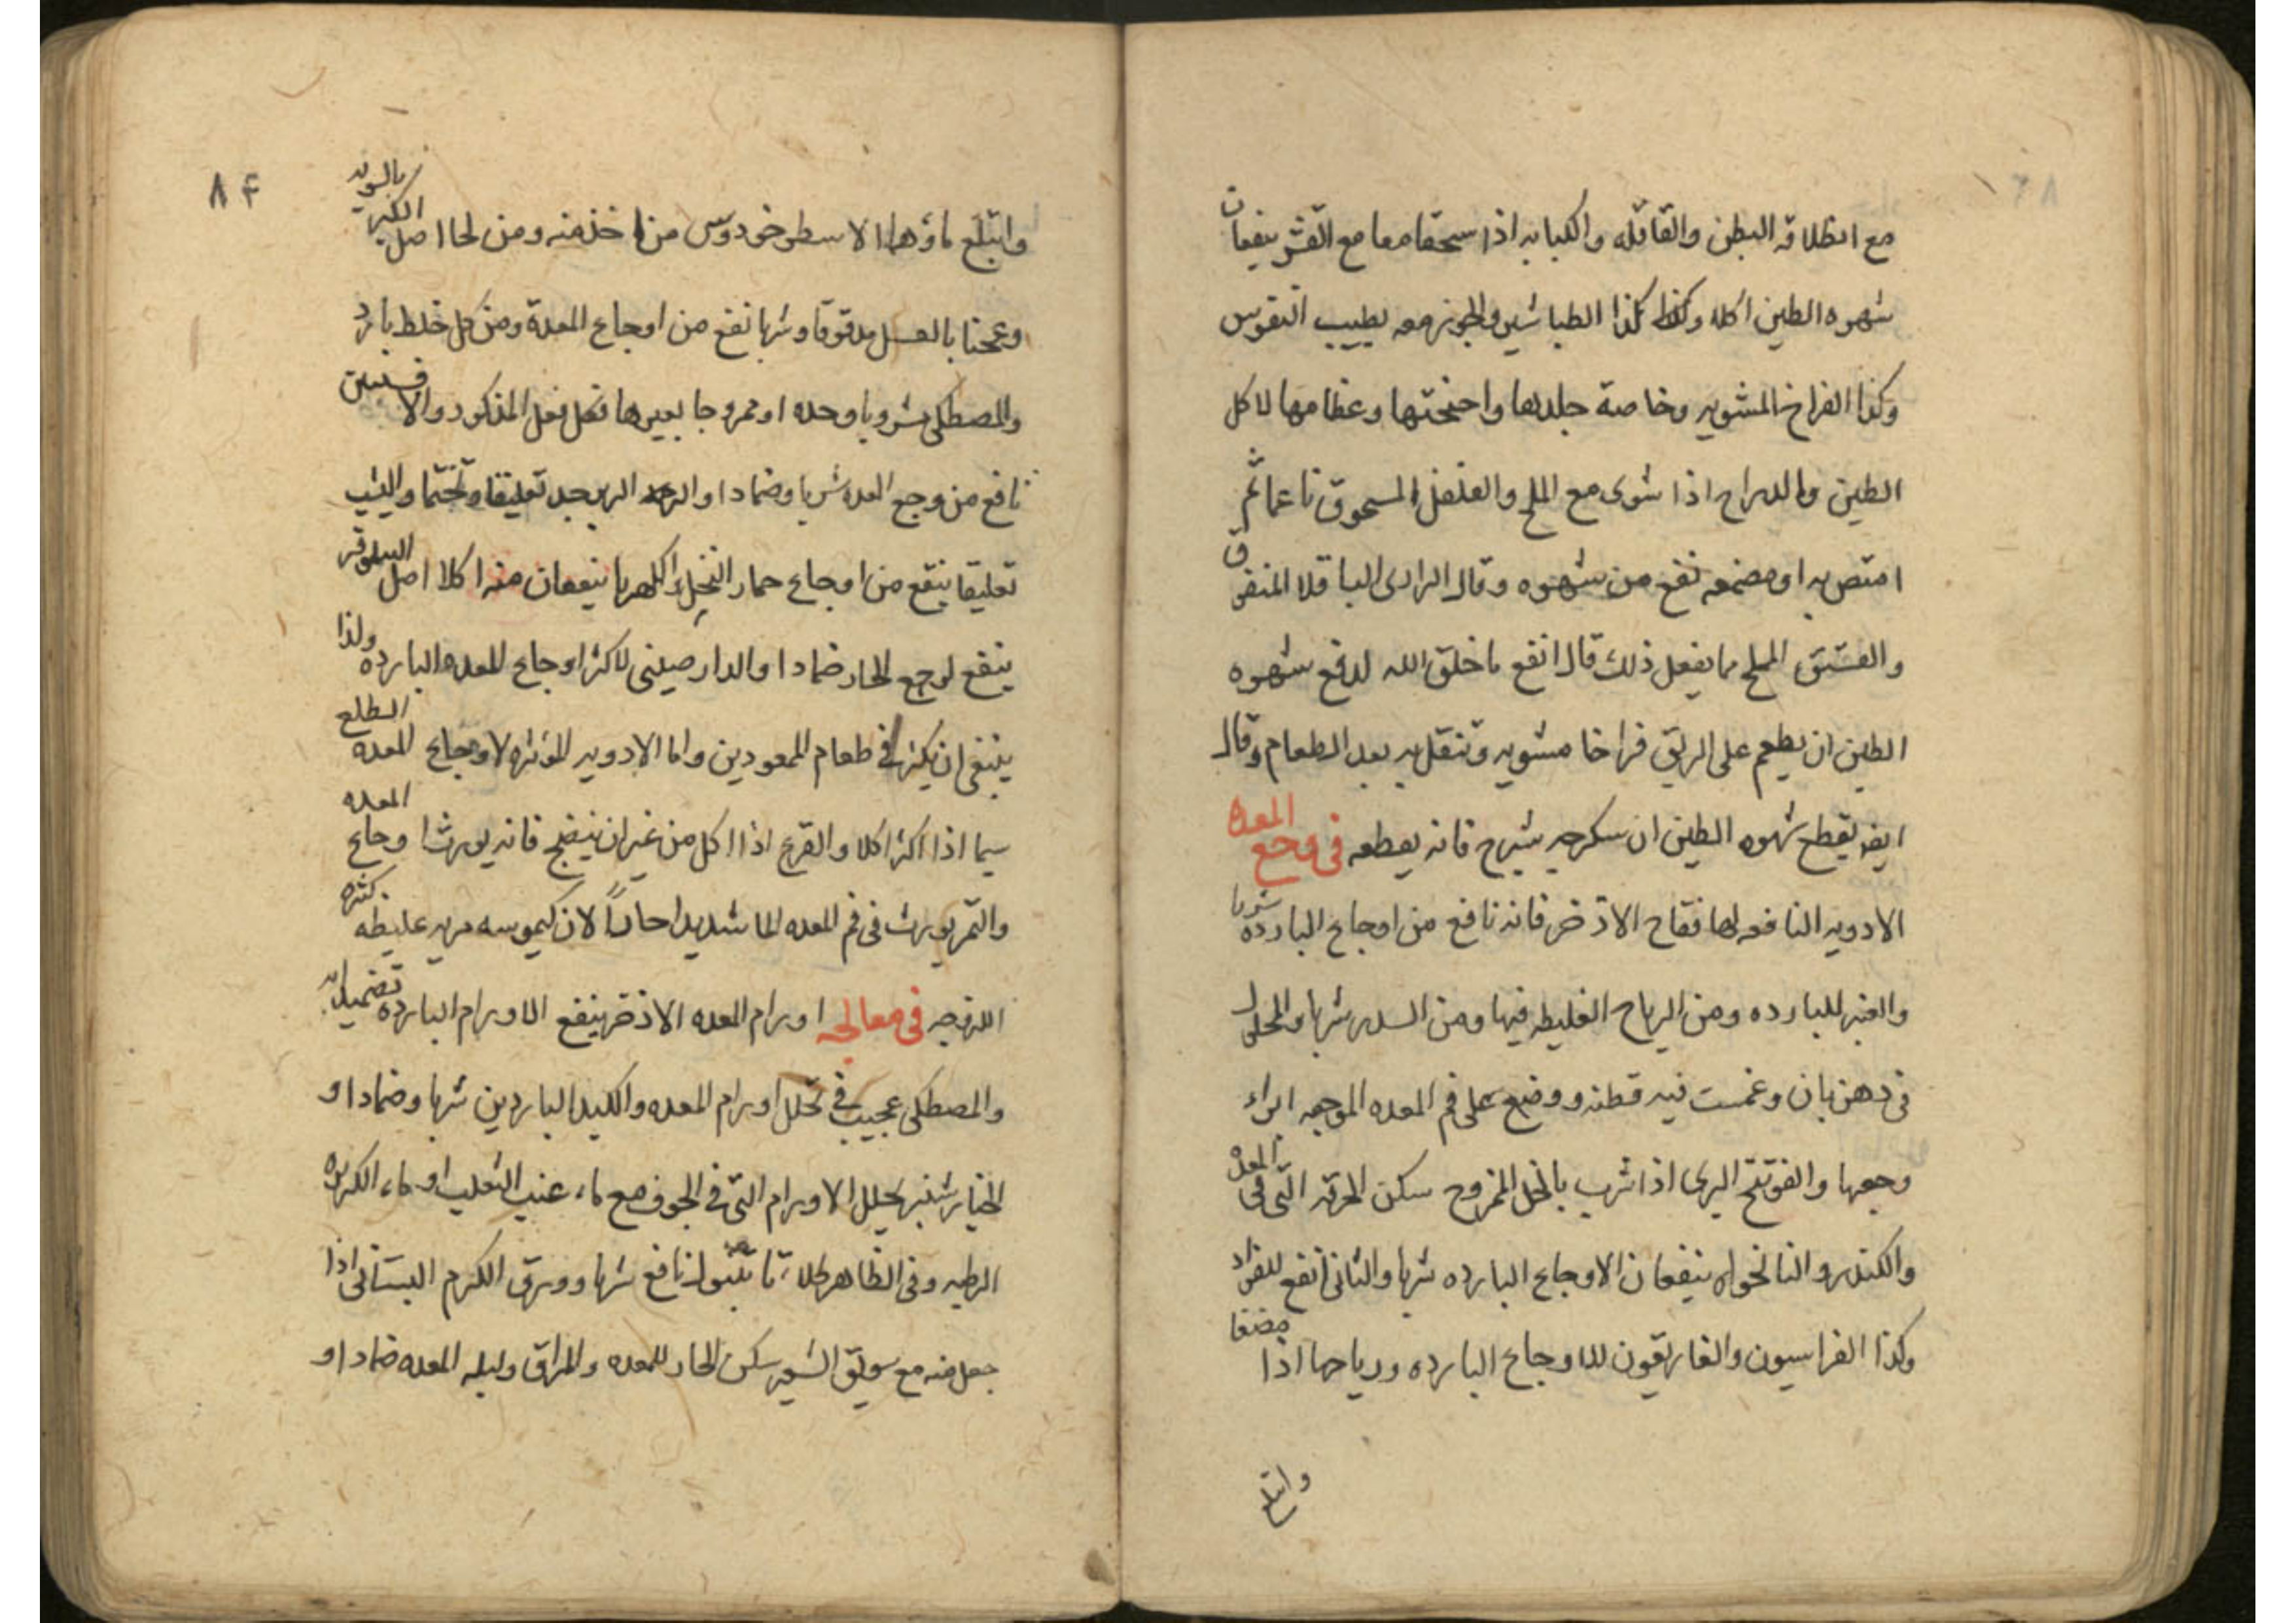 مع انطلاقه البطن والقاقله والكبابه اذا سحقا معا مع القشر ينفعان
شهوه الطين اكلا وكذا الطباشير والجوز معه بطبيب النفوس
وكذا الفراخ المشويه وخاصة جلدها واجنحتها وعظامها لاكل
الطين والدراج اذا شوى مع الملح والفلفل المسحوق ناعما ثم
امتص به او مضغه نفع من شهوه وقال الرازى الباقلا المنقوق
والفستق المملح مما يفعل ذلك قال انفع ما خلق الله لدفع شهوه
الطين ان يطعم على الريق فراخا مشويه وتنقل به بعد الطعام وقال
ايضا يقطع شهوه الطين ان سكرجه شيرج فانه يقطعه فى وجع المعده
الادويه النافعه لها فقاح الاذخر فانه نافع من اوجاع البارده شربا
والعنبر للبارده ومن الرياح الغليظه فيها ومن السدر شربا والمحلول
فى دهن بان وغمست فيه قطنه ووضع على فم المعده الموجعه ابراء
وجعها والفوتنج البرى اذا شرب بالخل الممزوج سكن الحرقه التى فى المعده
والكندر والنانخواه ينفعان الاوجاع البارده شربا والثانى انفع للفواد
وكذا الفراسيون والغاريقون للاوجاع البارده ورياحها اذا مضغا
وابتلع
٨٤
وابتلع ماؤهما الاسطوخودوس من اخذ منه ومن لحا اصل الكبر بالسويه
وعجنا بالعسل مدقوقا وشربا نفع من اوجاع المعدة ومن كل خلط بارد
والمصطكى مشروبا وحده او ممزوجا بغيرها تفعل فعل المذكور والافسنتين
نافع من وجع المعده شربا وضمادا والزبرجد تعليقا وتختما واليشب
تعليقا ينفع من اوجاع حمار النخل والكهربا ينفعان منه اكلا اصل السلوقر
ينفع لوجع الحار ضمادا والدارصينى لاكثر اوجاع المعده البارده ولذا
ينبغى ان يكثر فى طعام الممعودين واما الادويه المؤثره لاوجاع المعده الطلع
سيما اذا اكثر اكلا والقرع اذا اكل من غير ان ينضج فانه يورث اوجاع المعده
والتمر يورث فى فم المعده الما شديدا حادا لان كيموسه مريه غليظه كثره
اللزوجه فى معالجه اورام المعده الاذخر ينفع الاورام البارده تضميدا به
والمصطكى عجيب فى تحلل اورام المعده والكبد الباردين شربا وضمادا و
الخيارشنبر يحلل الاورام التى فى الجوف مع ماء عنب الثعلب او ماء الكزبره
الرطبه وفى الظاهر طلاء نافع شربا وورق الكرم البستانى اذا
جعل منه مع سويق الشعير سكن الحار للمعده والمراق المعده ضمادا و